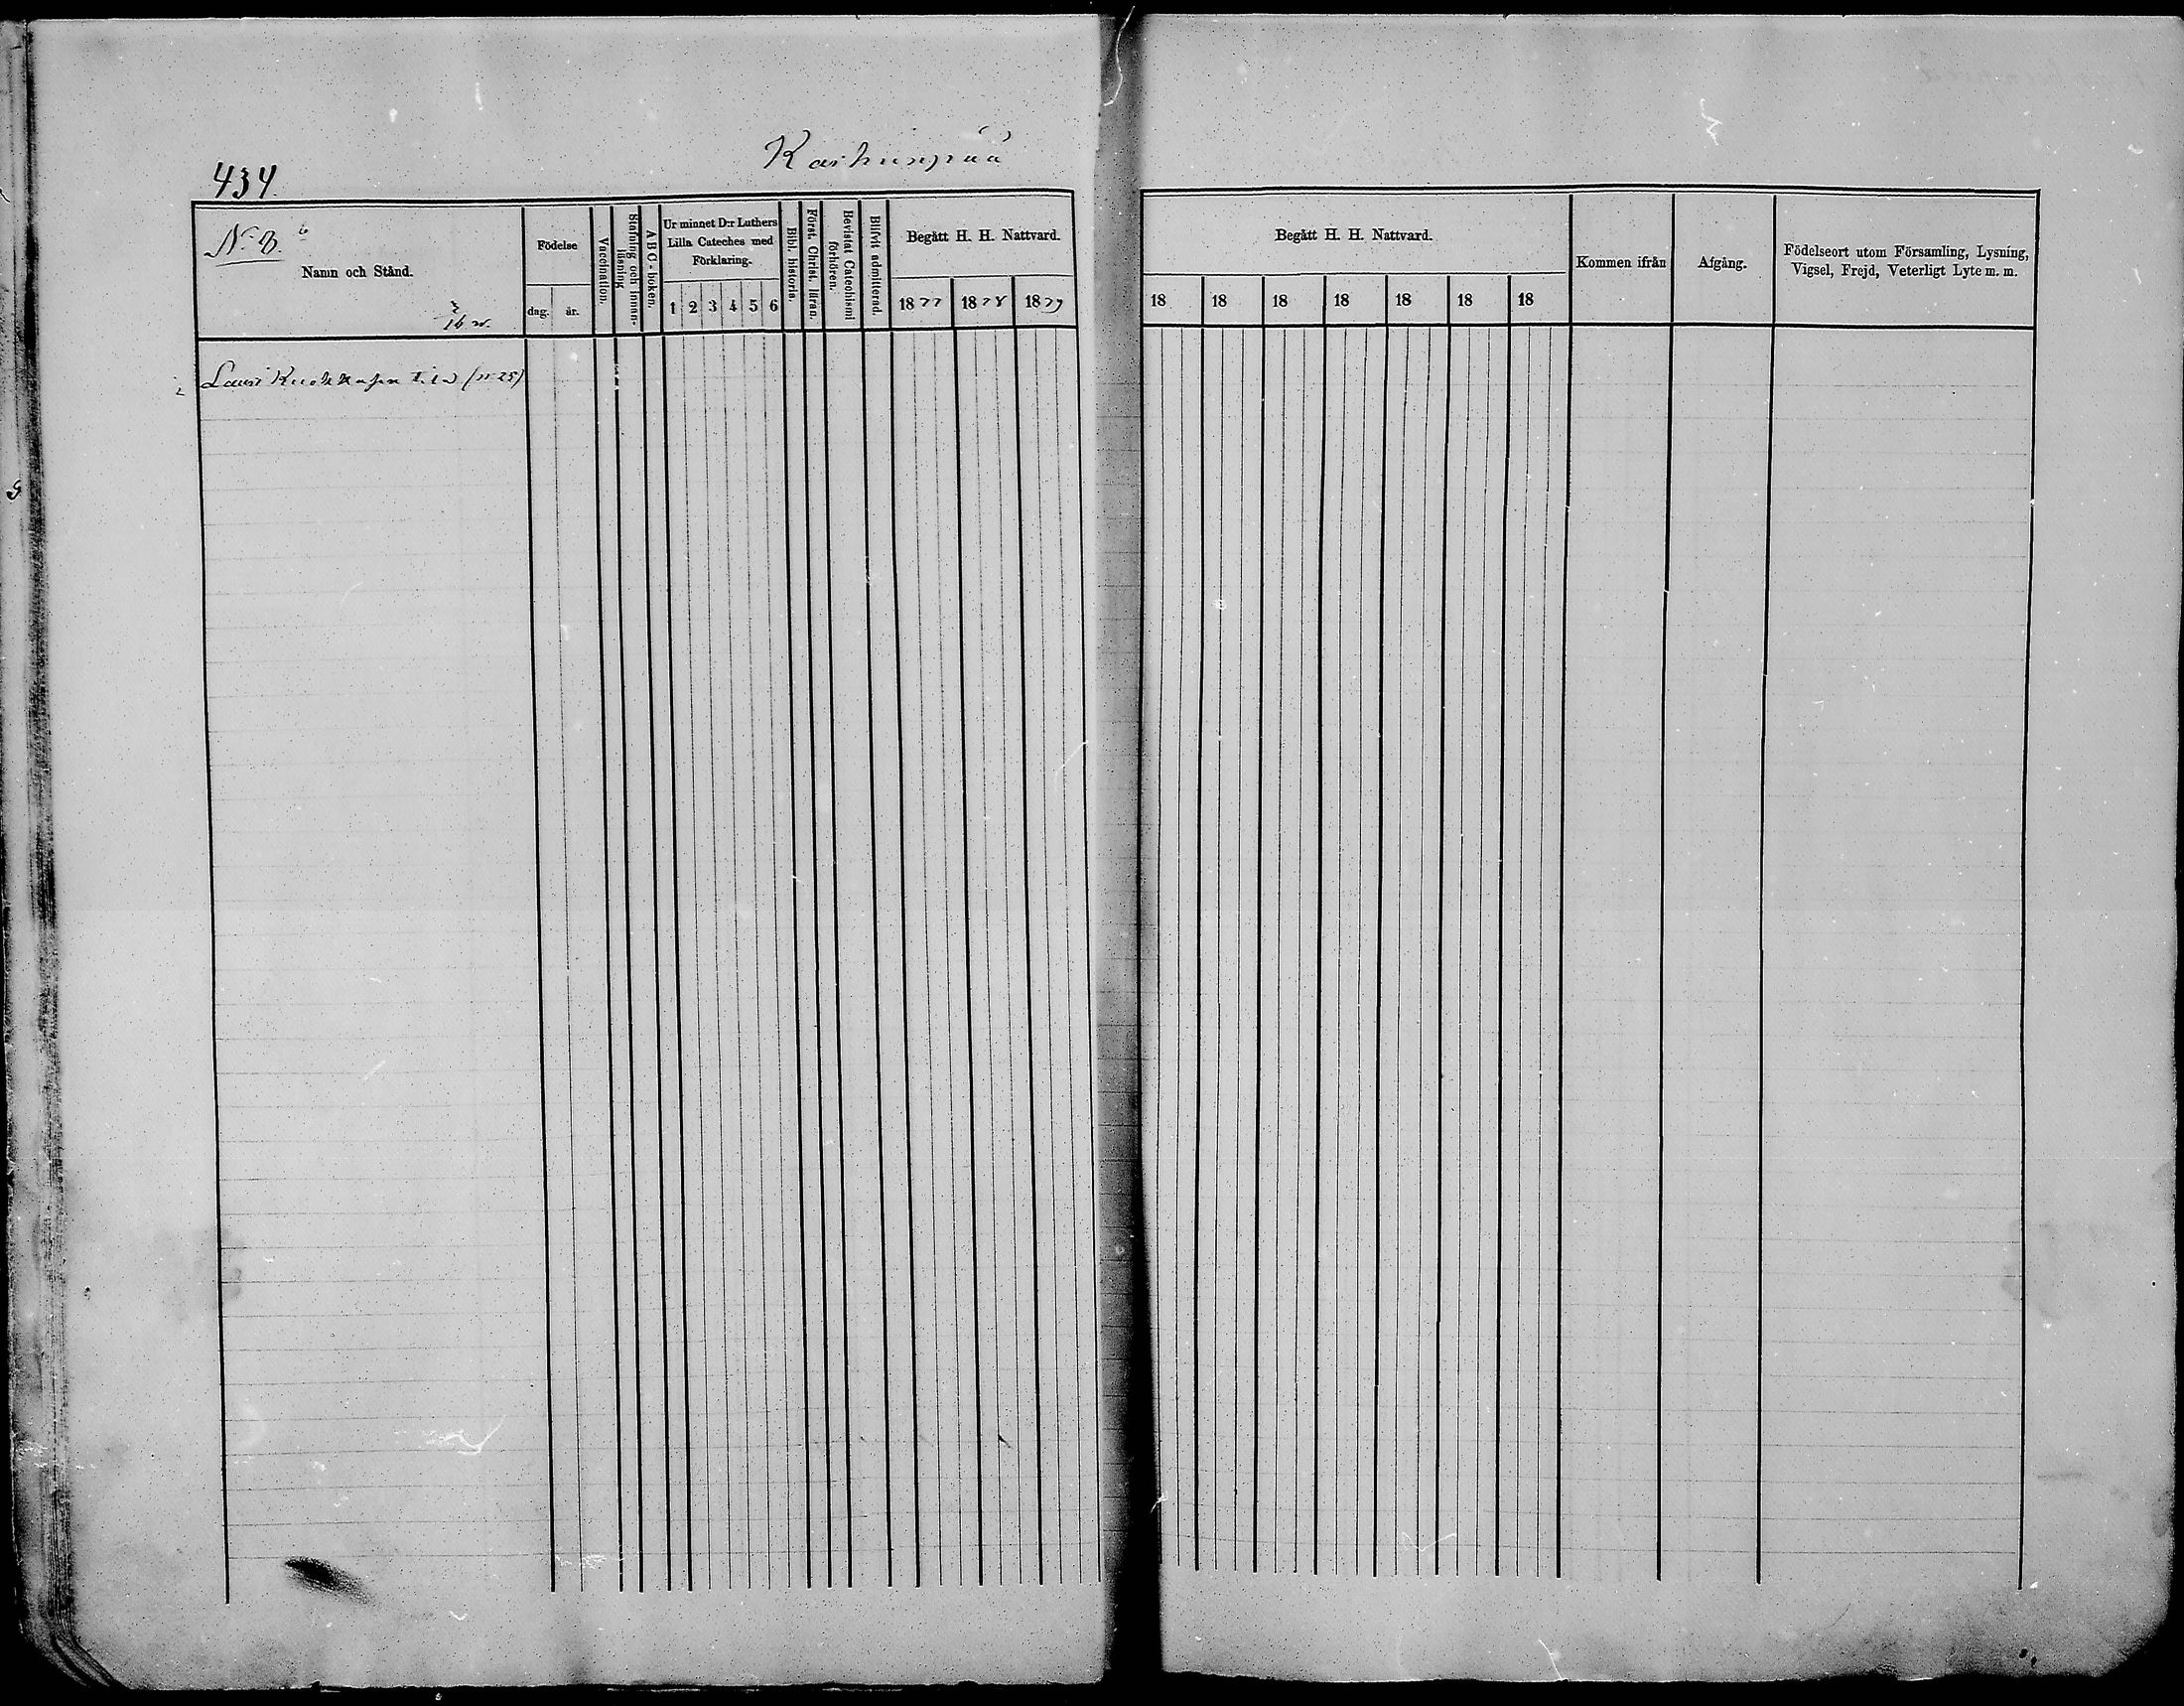 434.
Karhunpää
No 8.
Namn och Stånd.
Födelse
dag.
år.
Vaccination.
Stafning och innan-
läsning
A B C - boken.
Ur minnet D:r Luthers
Lilla Cateches med
Förklaring.
1 2 3 4 5 6
Bibl. historia.
Först. Christ. läran.
Bevistat Catechismi
förhören.
Blifvit admitterad.
Begått H. H. Nattvard.
1877 1878 1879
Begått H. H. Nattvard.
18 18 18 18 18 18 18
Kommen ifrån
Afgång.
Födelseort utom Församling, Lysning,
Vigsel, Frejd, Veterligt Lyte m. m.
Lauri (No 25)